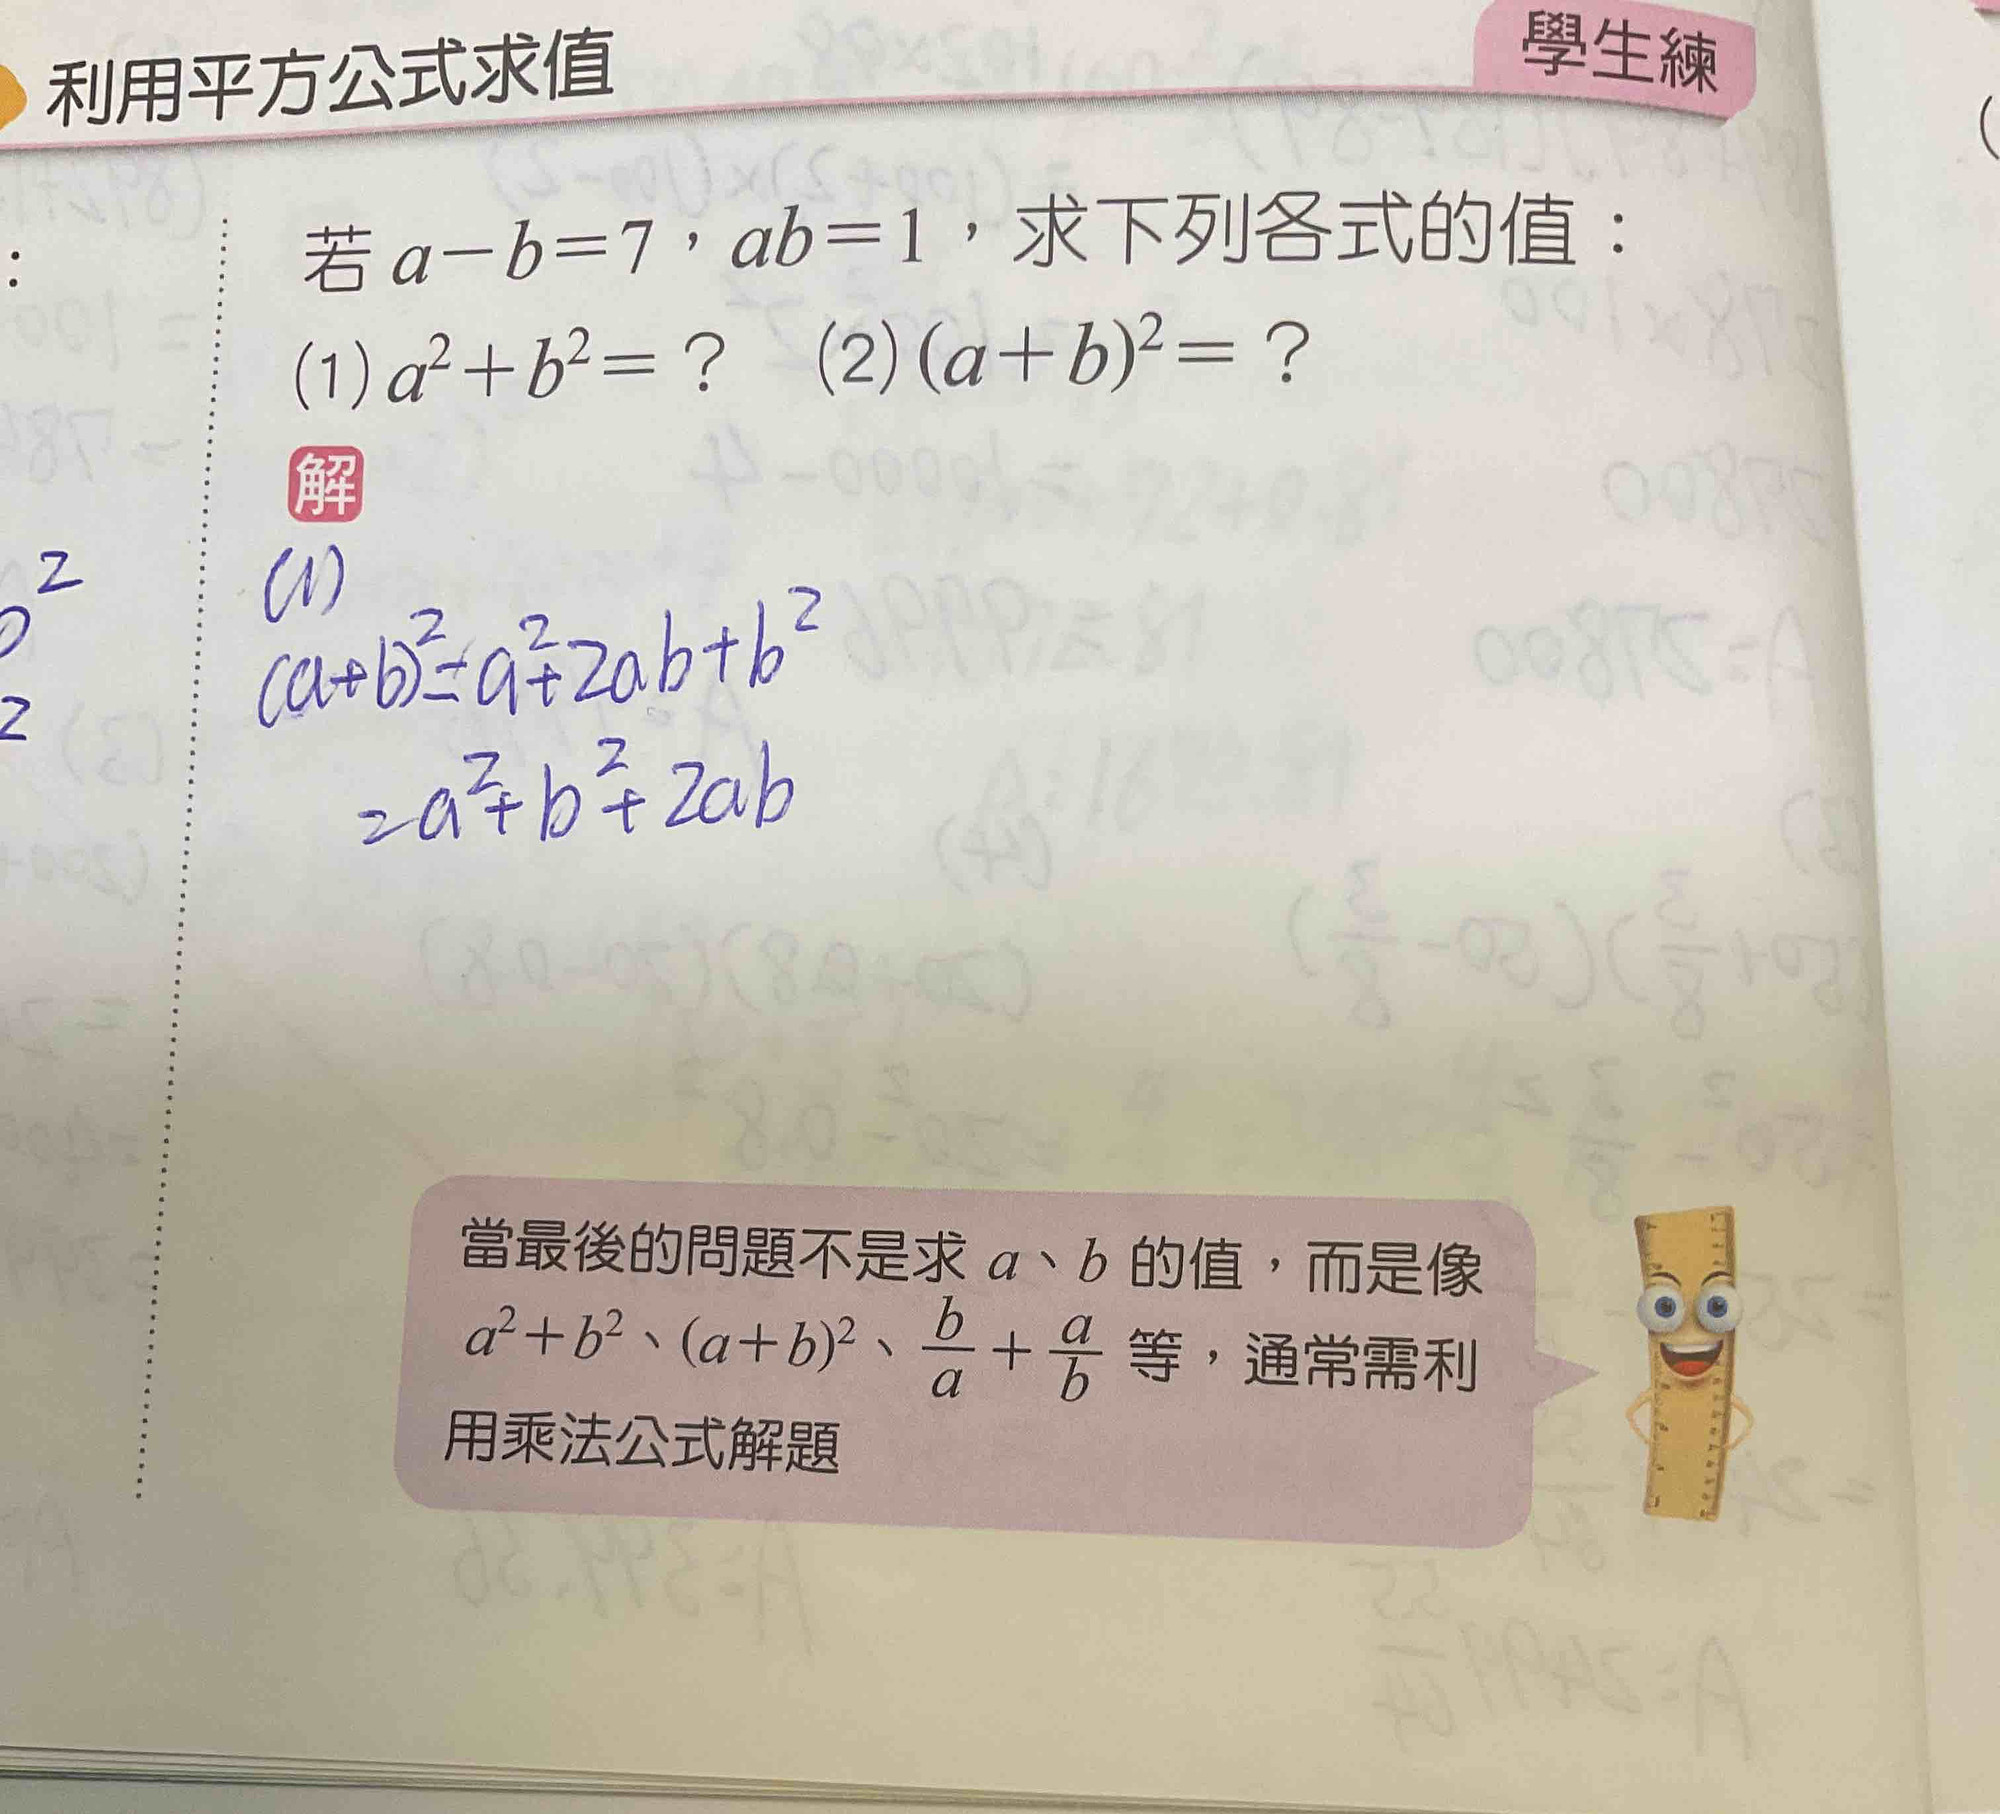 利用平方公式求值
學生練
若 a－b＝7，ab＝1，求下列各式的值：
(1) a²＋b²＝？ (2) (a＋b)²＝？
解
(1)
(a+b)²=a²+2ab+b²
=a²+b²+2ab
當最後的問題不是求 a、b 的值，而是像
a²＋b²、(a＋b)²、b/a＋a/b 等，通常需利
用乘法公式解題